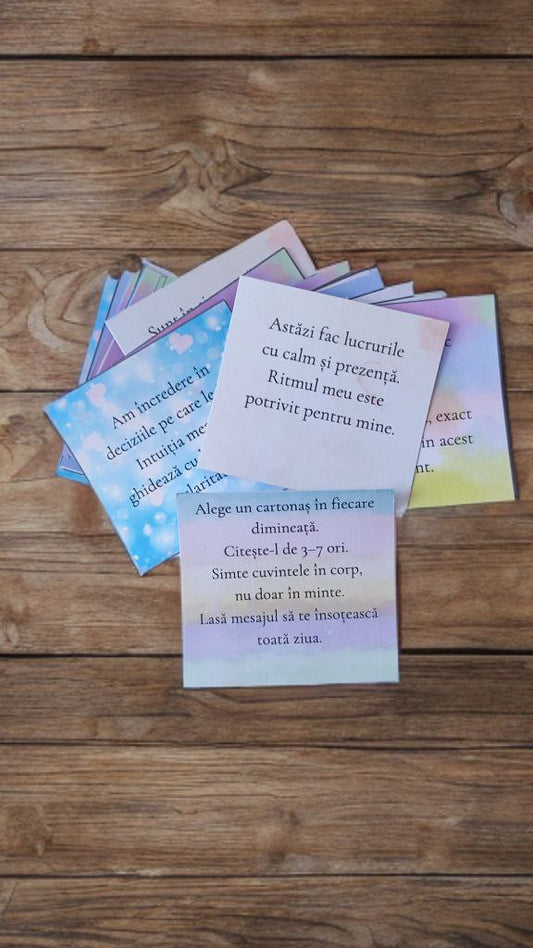 Sunt în
Astăzi fac lucrurile
cu calm și prezență.
Ritmul meu este
potrivit pentru mine.
Am încredere în
deciziile pe care le
Intuiția mea
ghidează cu
exact
în acest
Alege un cartonaș în fiecare
dimineață.
Citește-l de 3–7 ori.
Simte cuvintele în corp,
nu doar în minte.
Lasă mesajul să te însoțească
toată ziua.